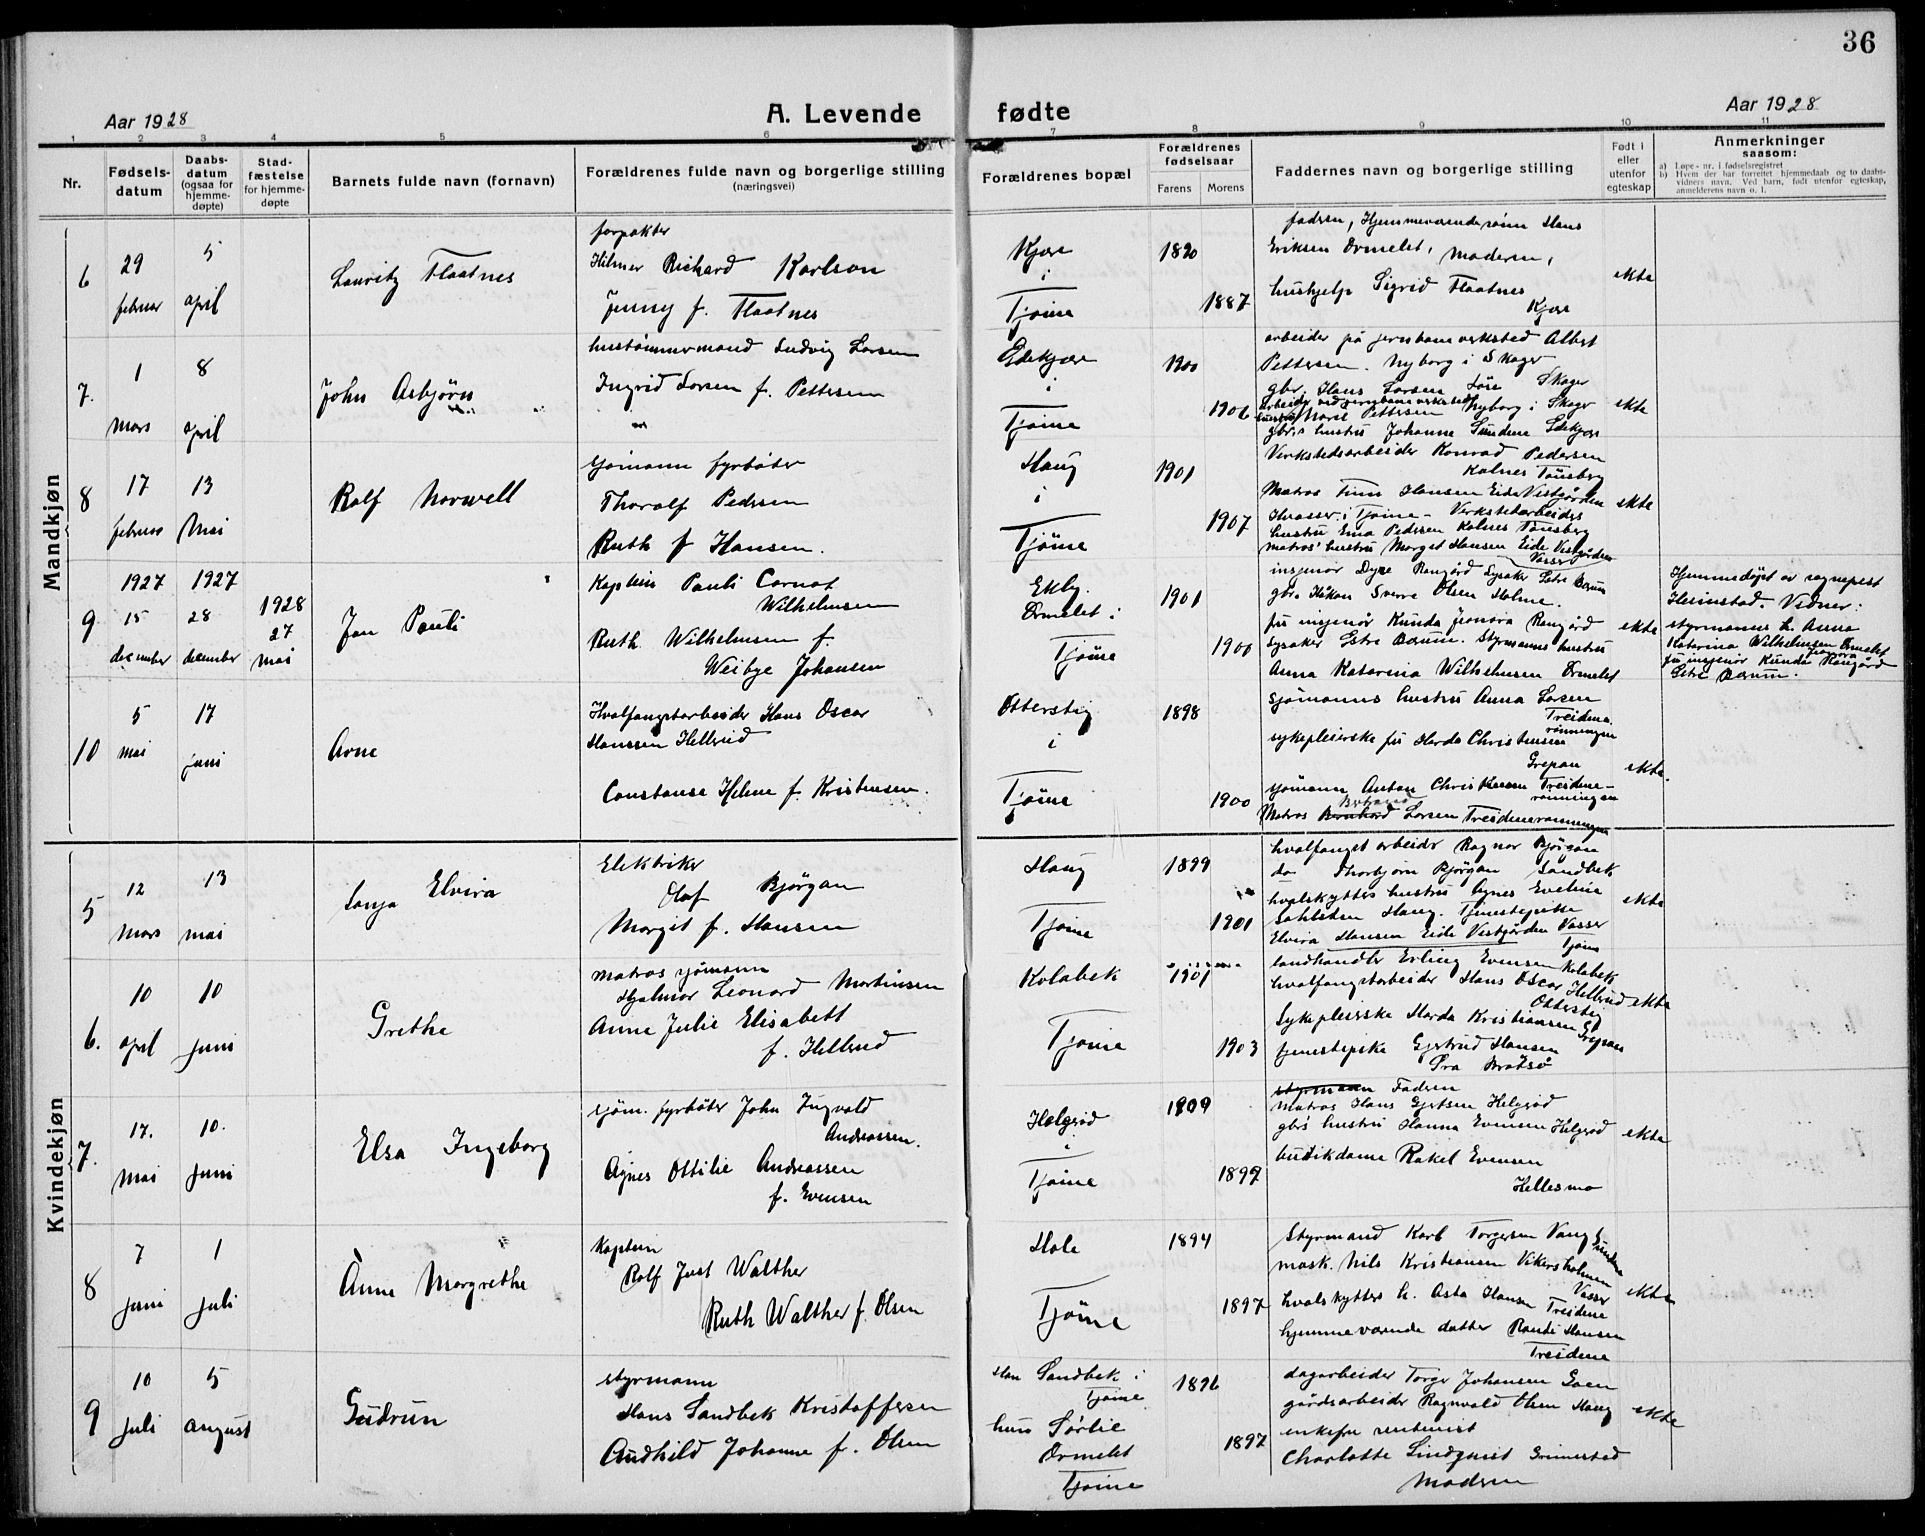 36
Aar 1928
A. Levende fødte
Aar 1928
1 2 3 4 5 6 7 8 9 10 11
Nr.
Fødsels-
datum
Daabs-
datum
(ogsaa for
hjemme-
døpte)
Stad-
fæstelse
for hjemme-
døpte
Barnets fulde navn (fornavn)
Forældrenes fulde navn og borgerlige stilling
(næringsvei)
Forældrenes bopæl
Forældrenes
fødselsaar
Farens
Morens
Faddernes navn og borgerlige stilling
Født i
eller
utenfor
egteskap
Anmerkninger
saasom:
a) Løpe-nr. i fødselsregistret
b) Hvem der har forrettet hjemmedaab og to daabs-
vidners navn. Ved barn, født utenfor egteskap,
anmelderens navn o. l.
Mandkjøn
6
29
februar
5
april
Lauritz Flaatnes
forpakter
Hilmer Richard Karlson
Jenny f. Flaatnes
Kjære
i
Tjøme
1887
faderen, Hjemmeværende sønn Hans
Eriksen Ormelet, Moderen,
hushjelp Sigrid Flaatnes
Kjære
ekte
7.
1
mars
8
april
John Asbjørn
hustømmermand Ludvig Larsen
Ingrid Larsen f. Pettersen
i
Tjøme
1900
1906
arbeider på jernbaneverksted Albert
Pettersen. Nyborg i Skoger
gbr. Hans Larsen Skoger
arbeider ved jernbaneverksted
hustru Marie Pettersen Nyborg i Skoger
gbr.s hustru Johanne Sundene
ekte
8
17
februar
13
Mai
Rolf Norvell
sjømann fyrbøter
Thoralf Pedersen
Ruth f Hansen.
Haug
i
Tjøme
1901
1907
Verkstedsarbeider Konrad Pedersen
Kalnes Tønsberg
Matros Finn Hansen Eide Vestgården
Tjøme - Verkstedarbeiders
hustru Ema Pedersen Kalnes Tønsberg
matros' hustru Margit Hansen Eide Vestgården
Vasser
ekte
9
1927
15
december
1927
28
december
1928
27
mai
Jan Pauli
Kaptein Pauli Carnot
Wilhelmsen
Ruth Wilhelmsen f.
Weibye Johansen
Ekly.
Ormelet i
Tjøme
1901
1900
ingeniør Dyre Rangård Lysaker Østre Bærum
gbr. Håkon Sverre Olsen Holme.
fru ingeniør Kunda Rangård
Lysaker Østre Bærum. Styrmanns hustru
Anna Katarina Wilhelmsen Ormelet
ekte
Hjemmedøpt av sogneprest
Vidner:
styrmanns h. Anna
Katarina Wilhelmsen Ormelet
fru ingeniør Kunda Rangård
Østre Bærum.
10
5
mai
17
juni
Arne
Hvalfangstarbeider Hans Oscar
Hanssen Hellerud
Constanse Helene f. Kristensen.
Otterstig
i
Tjøme
1898
1900
sjømanns hustru Anna Larsen
Treidene
rønningen
sykepleierske frk Harda Christensen
Grepan
sjømann Anton Christensen Treidene-
rønningen
Matros Bernhard Larsen Treidenerønningen
ekte.
Kvindekjøn
5
12
Mars
13
mai
Sonja Elvira
Elektriker
Olaf Bjørgan
Margit f. Hansen
Haug
Tjøme
1899
1901
hvalfangstarbeider Ragnar Bjørgan
do Thorbjørn Bjørgan Sandbek
hvalskytters hustru Agnes Eveline
Dahlsten Haug. Tjenestepike
Elvira Hansen Eide Vestgården Vasser
Tjøme
ekte
6.
10
april
10
juni
Grethe
matros sjømann
Hjalmar Leonard Martinsen
Anna Julie Elisabett
f. Hellerud
Kolabek
Tjøme
1901
1903
landhandler Erling Evensen Kolabek
hvalfangstarbeider Hans Oscar Hellerud
Otterstig
Sykepleierske Harda Kristiansen Grepan
tjenestepike Gjertrud Hansen
Øra Brøtsø
ekte
7.
17.
Mai
10.
juni
Elsa Ingeborg
sjøm. fyrbøter John Ingvald
Andreassen.
Agnes Ottilie Andreassen
f. Evensen
Helgerød
i
Tjøme
1899
styrmann Faderen
Matros Hans Gjertsen Helgerød
gbr's hustru Hanna Evensen Helgerød
butikdame Rakel Evensen
Hellesmo
ekte
8
7
juni
1
juli
Anne Margrethe
Kaptein
Rolf Just Walther
Ruth Walther f. Olsen
Hole
Tjøme
1894
1897
Styrmand Karl Torgersen Vang
mask. Nils Kristiansen Vikersholmen
Vasser
hvalskytters h. Asta Hansen Treidene
hjemmeværende datter Randi Hansen
Treidene
ekte
9
10
juli
5
august
Gudrun
styrmann
Hans Sandbek Kristoffersen
Audhild Johanne f. Olsen
Han Sandbek i
Tjøme
hun Sørlie
Ormelet
Tjøme
1896
1897
dagarbeider Torger Johansen Goen
gårdsarbeider Ragnvald Olsen Haug
enkefru rentenist
Charlotte Lindqvist Grimestad
Moderen
ekte